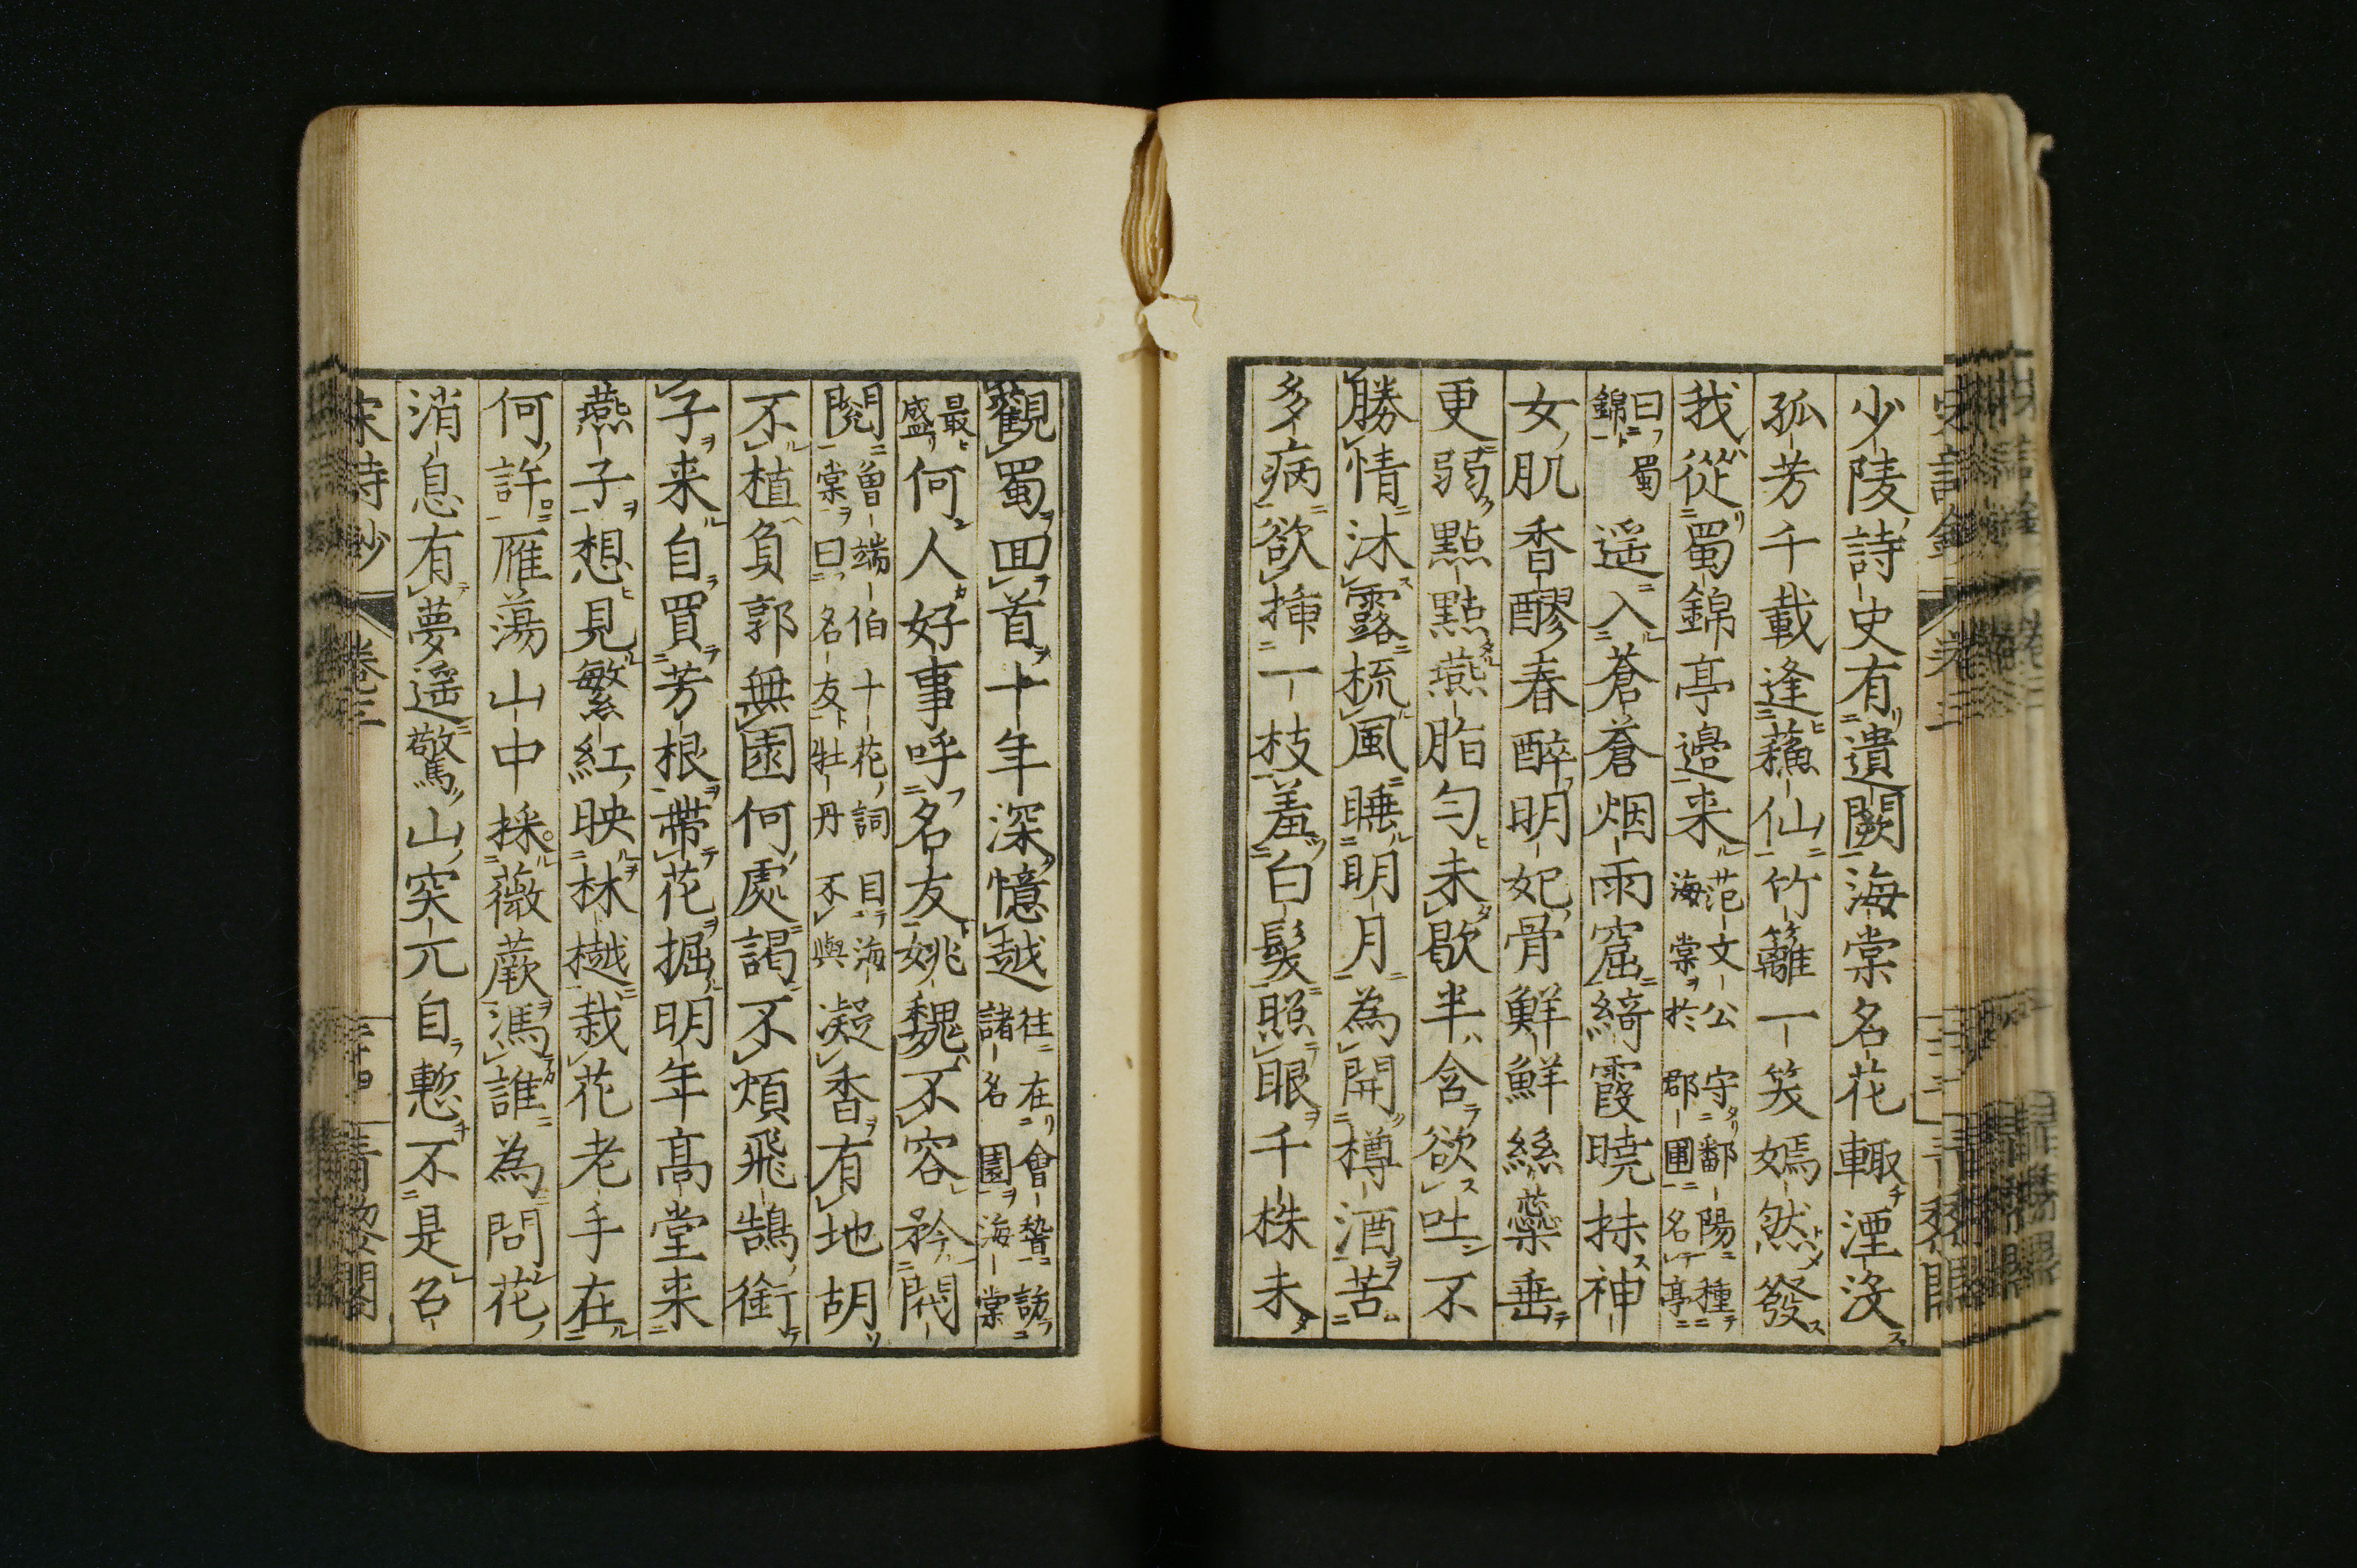 少陵詩史有遺闕海棠名花輙湮沒
孤芳千載逢蘓仙竹籬一笑嫣然發
我從蜀錦亭邉来范文公守鄱陽種海棠於郡圃名亭
曰蜀錦遥入蒼蒼烟雨窟綺霞曉抹神
女肌香醪春醉明妃骨鮮鮮絲蘂垂
更弱點點燕脂勻未歇半含欲吐不
勝情沐露梳風睡明月為開樽酒苦
多病欲揷一枝羞白髪照眼千株未
觀蜀囬首十年深憶越往在會稽訪諸名園海棠
最盛何人好事呼名友姚魏不容矜閥
閱曽端伯十花詞目海棠曰名友牡丹不與凝香有地胡
不植負郭無園何處謁不煩飛鵠銜
子来自買芳根帶花掘明年髙堂来
燕子想見繁紅映林樾栽花老手在
何許雁蕩山中採薇蕨馮誰為問花
消息有夢遥驚山突兀自慙不是名
宋詩鈔 卷三 青黎閣